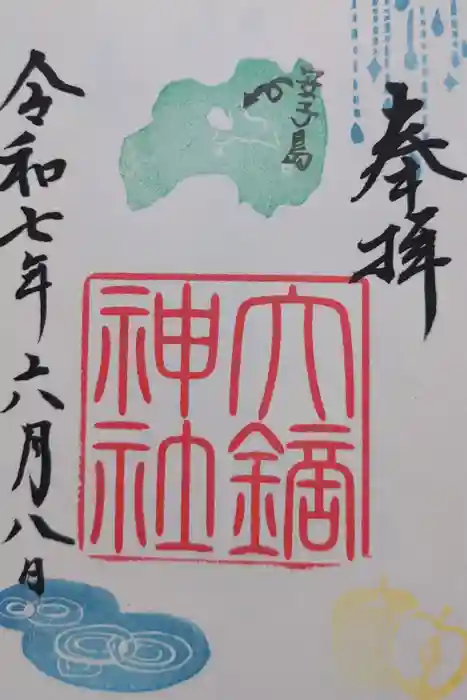 奉拝
安子島
大鏑
神社
令和七年六月八日